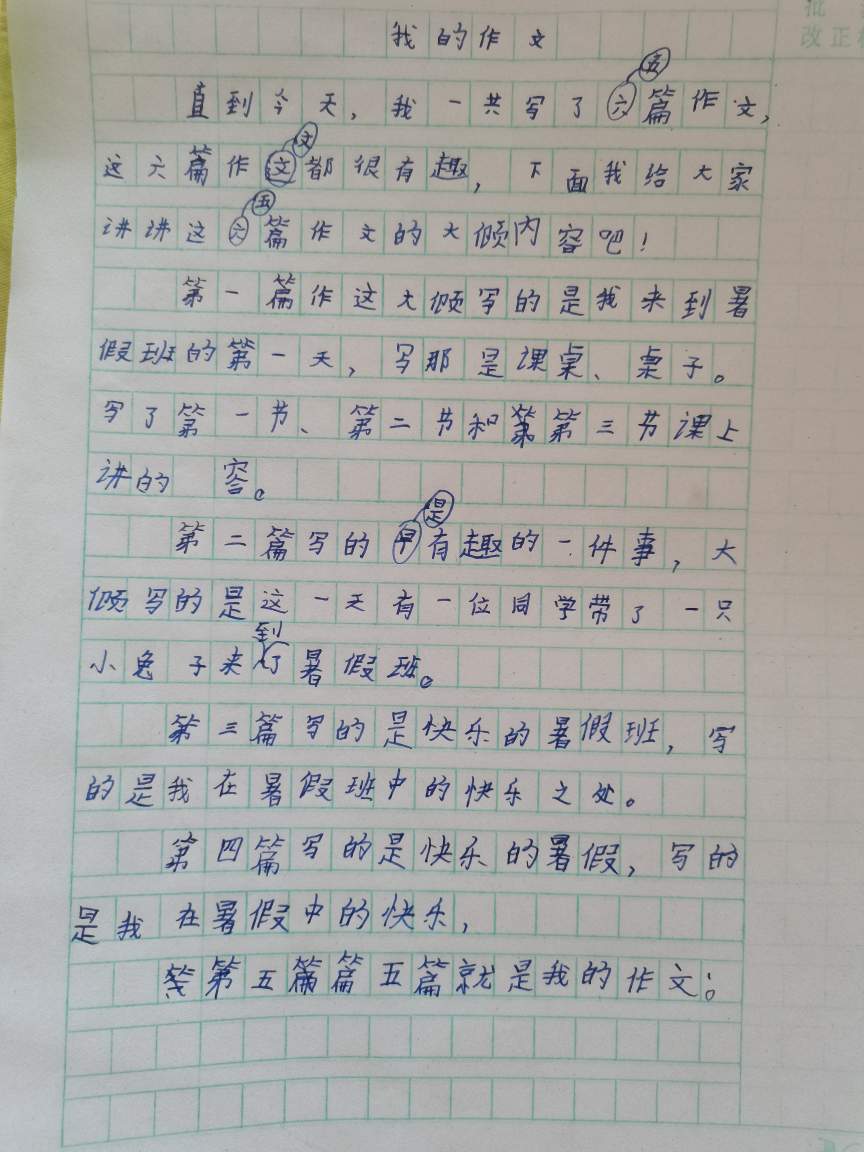 批
改正
我的作文
五
直到今天，我一共写了六篇作文，
文
这六篇作文都很有趣，下面我给大家
五
讲讲这六篇作文的大倾内容吧！
第一篇作这大倾写的是我来到暑
假班的第一天，写那是课桌、桌子。
写了第一节、第二节和第第三节课上
讲的 容。
是
第二篇写的早有趣的一件事，大
倾写的是这一天有一位同学带了一只
到
小兔子来了暑假班。
第三篇写的是快乐的暑假班，写
的是我在暑假班中的快乐之处。
第四篇写的是快乐的暑假，写的
是我在暑假中的快乐，
第五篇篇五篇就是我的作文；